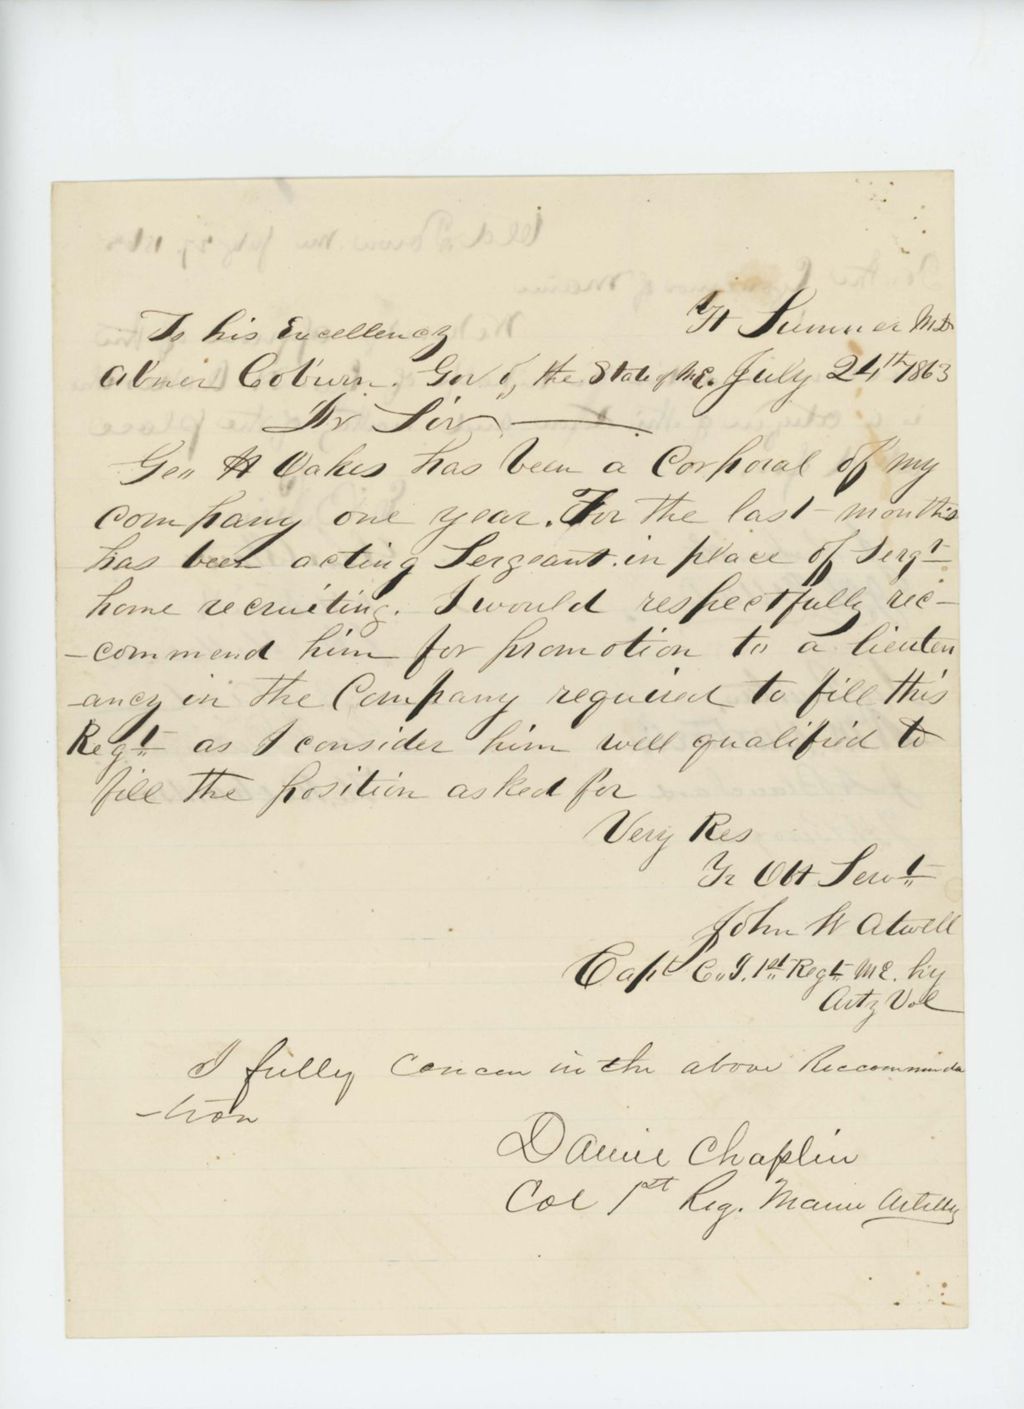 Ft Sumner Md
To his Excellency
Abner Coburn. Gov of the State of Me. July 24th 1863
Dr Sir
Geo H Oakes has been a Corporal of my
company one year. For the last months
has been acting Sergeant in place of Sergt
home recruiting. I would respectfully rec-
-commend him for promotion to a lieuten
-ancy in the Company required to fill this
Regt as I consider him well qualified to
fill the position asked for
Very Res
Yr Obt Servt
John W Atwell
Capt Co I. 1st Regt Me. hvy
Arty Vol
I fully concur in the above Reccommenda
-tion
Daniel Chaplin
Col 1st Reg. Maine Artillery